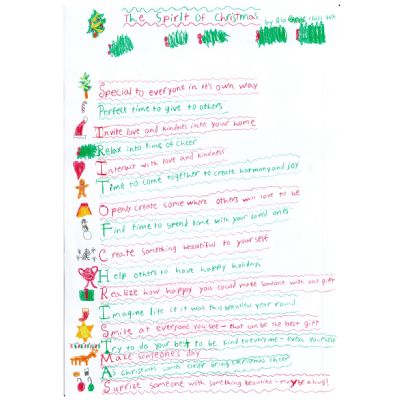 The Spirit of Christmas
by
Special to everyone in it's own way
Perfect time to give to others
Invite love and kindnes into your home
Relax into time of cheer
Interact with love and kindness
Time to come together to create harmony and joy
Openly create some where others love to be
Find time to spend time with your loved ones
Create something beautiful to yourself
Help others to have happy holidays
Realize how happy you could make someone with one gift
Imagine life if it was this beautiful year round
Smile at everyone you see - that can be the best gift
Try to do your best to be kind to everyone - even yourself
Make someone's day
As christmas comes closer bring christmas cheer
Suprize someone with something beautiful - maybe a hug!